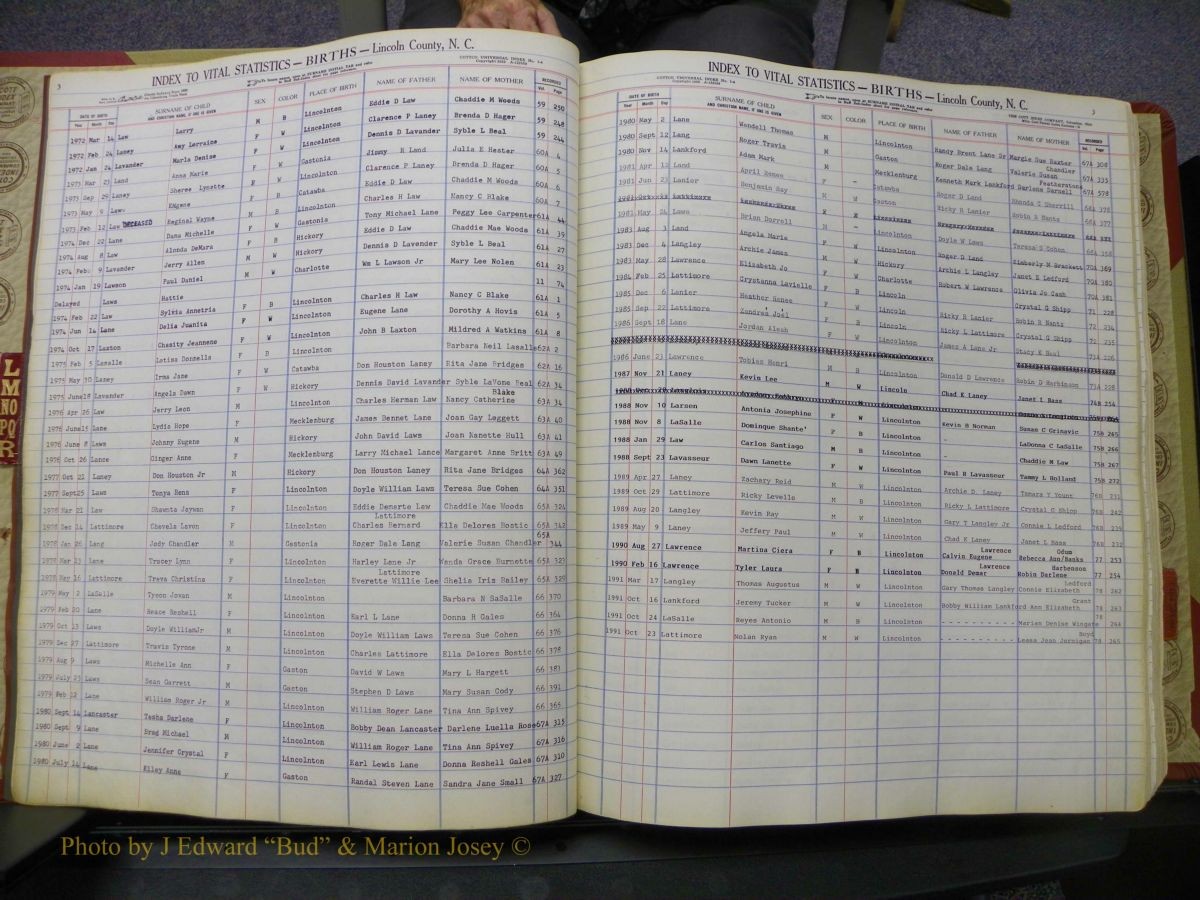 INDEX TO VITAL STATISTICS — BIRTHS — Lincoln County, N. C.
SURNAME OF CHILD SEX COLOR PLACE OF BIRTH NAME OF FATHER NAME OF MOTHER RECORDED
Year Month Day Vol. Page
1972 Mar 14 Law Larry M B Lincolnton Eddie D Law Chaddie M Woods 59 250
1972 Feb 24 Laney Amy Lorraine F W Lincolnton Clarence P Laney Brenda D Hager 59 248
1972 Jan 24 Lavander Marla Denise F W Lincolnton Dennis D Lavander Syble L Beal 59 244
1973 Mar 23 Land Anna Marie F W Gastonia Jimmy R Land Julia E Hester 60A 4
1973 Sep 29 Laney Sheree Lynette Catawba Clarence P Laney Brenda D Hager 60A 5
1973 May 9 Laws EUgene Lincolnton Eddie D Law Chaddie M Woods 60A 6
1973 Feb 12 Law DECEASED Reginal Wayne M B Gastonia Charles H Law Nancy C Blake 60A 7
1974 Dec 22 Lane Dana Michelle F W Hickory Tony Michael Lane Peggy Lee Carpenter 61A 44
1974 Aug 8 Law Alonda DeMara F B Hickory Eddie D Law Chaddie Mae Woods 61A 39
1974 Feb 9 Lavender Jerry Allen M W Hickory Dennis D Lavender Syble L Beal 61A 27
1974 Jan 19 Lawson Paul Daniel M W Charlotte Wm L Lawson Jr Mary Lee Nolen 61A 23
Delayed Laws Hattie 11 74
1974 Feb 22 Law Sylvia Annetria F B Lincolnton Charles H Law Nancy C Blake 61A 1
1974 Jun 14 Lane Delia Juanita F W Lincolnton Eugene Lane Dorothy A Hovis 61A 5
1974 Oct 17 Laxton Chasity Jeannene F W Lincolnton John B Laxton Mildred A Watkins 61A 8
1975 Feb 5 Lasalle Latisa Donnells F B Lincolnton Barbara Neil Lasalle 62A 2
1975 May 30 Laney Irma Jane F W Catawba Don Houston Laney Rita Jane Bridges 62A 16
1975 June18 Lavander Angela Dawn F W Hickory Dennis David Lavander Syble LaVone Beal 62A 34
1976 Apr 26 Law Jerry Leon M Lincolnton Charles Herman Law Nancy Catherine Blake 63A 34
1976 June15 Lane Lydia Hope F Mecklenburg James Bennet Lane Joan Gay Leggett 63A 40
1976 June 8 Laws Johnny Eugene M Hickory John David Laws Joan Nanette Hull 63A 41
1976 Oct 26 Lance Ginger Anne F Mecklenburg Larry Michael Lance Margaret Anne Britt 63A 49
1977 Oct 21 Laney Don Houston Jr M Hickory Don Houston Laney Rita Jane Bridges 64A 362
1977 Sept25 Laws Tonya Rena F Lincolnton Doyle William Laws Teresa Sue Cohen 64A 351
1978 Mar 21 Law Shawnta Jaywan F Lincolnton Eddie Demarte Law Chaddie Mae Woods 65A 324
1978 Dec 14 Lattimore Chevela Lavon F Lincolnton Charles Bernard Lattimore Ella Delores Bostic 65A 342
1978 Jan 26 Lang Jody Chandler M Gastonia Roger Dale Lang Valerie Susan Chandler 65A 344
1978 Mar 23 Lane Tracey Lynn F Lincolnton Harley Lane Jr Wanda Grace Burnette 65A 323
1978 May 16 Lattimore Treva Christina F Lincolnton Everette Willie Lee Lattimore Shelia Iris Bailey 65A 329
1979 May 2 LaSalle Tyson Jovan M Lincolnton Barbara N SaSalle 66 370
1979 Feb 20 Lane Heace Reshell F Lincolnton Karl L Lane Donna H Gales 66 364
1979 Oct 13 Laws Doyle WilliamJr M Lincolnton Doyle William Laws Teresa Sue Cohen 66 376
1979 Dec 27 Lattimore Travis Tyrone M Lincolnton Charles Lattimore Ella Delores Bostic 66 378
1979 Aug 9 Laws Michelle Ann F Gaston David W Laws Mary L Hargett 66 381
1979 July 23 Laws Sean Garrett M Gaston Stephen D Laws Mary Susan Cody 66 391
1979 Feb 12 Lane William Roger Jr M Lincolnton William Roger Lane Tina Ann Spivey 66 365
1980 Sept 14 Lancaster Tasha Darlene F Lincolnton Bobby Dean Lancaster Darlene Luella Rose 67A 315
1980 Sept 9 Lane Greg Michael M Lincolnton William Roger Lane Tina Ann Spivey 67A 316
1980 June 2 Lane Jennifer Crystal F Lincolnton Earl Lewis Lane Donna Reshell Gales 67A 310
1980 July 14 Lane Kiley Anne F Gaston Randal Steven Lane Sandra Jane Small 67A 327
INDEX TO VITAL STATISTICS — BIRTHS — Lincoln County, N. C.
DATE OF BIRTH SURNAME OF CHILD SEX COLOR PLACE OF BIRTH NAME OF FATHER NAME OF MOTHER RECORDED
Year Month Day Vol. Page
1980 May 2 Lane Wendell Thomas M Lincolnton Handy Brent Lane Sr Margie Sue Baxter 67A 308
1980 Sept 12 Lang Roger Travis M Gaston Roger Dale Lang Valerie Susan Chandler 67A 335
1980 Nov 14 Lankford Adam Mark M Mecklenburg Kenneth Mark Lankford Darlena Darnell Featherstone 67A 578
1981 Apr 12 Land April Renee F - Catawba Roger D Land Rhonda C Sherrill 68A 378
1981 Jun 23 Lanier Benjamin Ray Gaston Ricky R Lanier Robin R Nantz 68A 377
1981 May 24 Laws Brian Darrell M - Lincolnton Doyle W Laws Teresa S Cohen
1983 Aug 3 Land Angela Marie F W Hickory Roger D Land Kimberly M Brackett 70A 369
1983 Dec 4 Langley Archie James M W Charlotte Archie L Langley Janet E Ledford 70A 380
1983 May 28 Lawrence Elizabeth Jo Robert W Lawrence Olivia Jo Cash 70A 381
1984 Feb 25 Lattimore Crystanna Lavielle F B Lincoln Crystal G Shipp 71 228
1985 Dec 6 Lanier Heather Renee F W Lincolnton Ricky R Lanier Robin R Nantz 72 234
1985 Sep 22 Lattimore Zundrea Joel Lincolnton Ricky L Lattimore Crystal G Shipp 72 235
1986 Sept 18 Lane Jordan Aleah F W Lincolnton James A Lane Jr Stacy K Neal 73A 226
1986 June 23 Lawrence Tobias Henri M B Lincolnton Donald D Lawrence Robin D Harbinson 73A 228
1987 Nov 21 Laney Kevin Lee M W Lincoln Chad K Laney Janet L Bass 74B 254
1988 Nov 10 Larsen Antonia Josephine F W Lincolnton Kevin B Norman Susan C Grinavic 75B 265
1988 Nov 8 LaSalle Dominque Shante' F B Lincolnton - LaDonna C LaSalle 75B 266
1988 Jan 29 Law Carlos Santiago M B Lincolnton - Chaddie M Law 75B 267
1988 Sept 23 Lavasseur Dawn Lanette F W Lincolnton Paul R Lavasseur Tammy L Holland 75B 272
1989 Apr 27 Laney Zachary Reid M W Lincolnton Archie D. Laney Tamara Y Yount 76B 231
1989 Oct 29 Lattimore Ricky Levelle M B Lincolnton Ricky L Lattimore Crystal C Shipp 76B 242
1989 Aug 20 Langley Kevin Ray M W Lincolnton Gary T Langley Jr Connie L Ledford 76B 239
1989 May 9 Laney Jeffery Paul M W Lincolnton Chad K Laney Janet L Bass 76B 232
1990 Aug 27 Lawrence Martina Ciera F B Lincolnton Calvin Eugene Lawrence Rebecca Ann/Banks Odum 77 253
1990 Feb 16 Lawrence Tyler Laura F B Lincolnton Donald Demar Lawrence Robin Darlene Harbenson 77 254
1991 Mar 17 Langley Thomas Augustus M W Lincolnton Gary Thomas Langley Connie Elizabeth Ledford 78 262
1991 Oct 16 Lankford Jeremy Tucker M W Lincolnton Bobby William Lankford Ann Elizabeth Grant 78 263
1991 Oct 24 LaSalle Reyes Antonio M B Lincolnton - - - - - - - - - - Marian Denise Wingate 78 264
1991 Oct 23 Lattimore Nolan Ryan M W Lincolnton - - - - - - - - - - Leasa Jean Jernigan Boyd 78 265
L
M
NO
PQ
R
Photo by J Edward “Bud” & Marion Josey ©